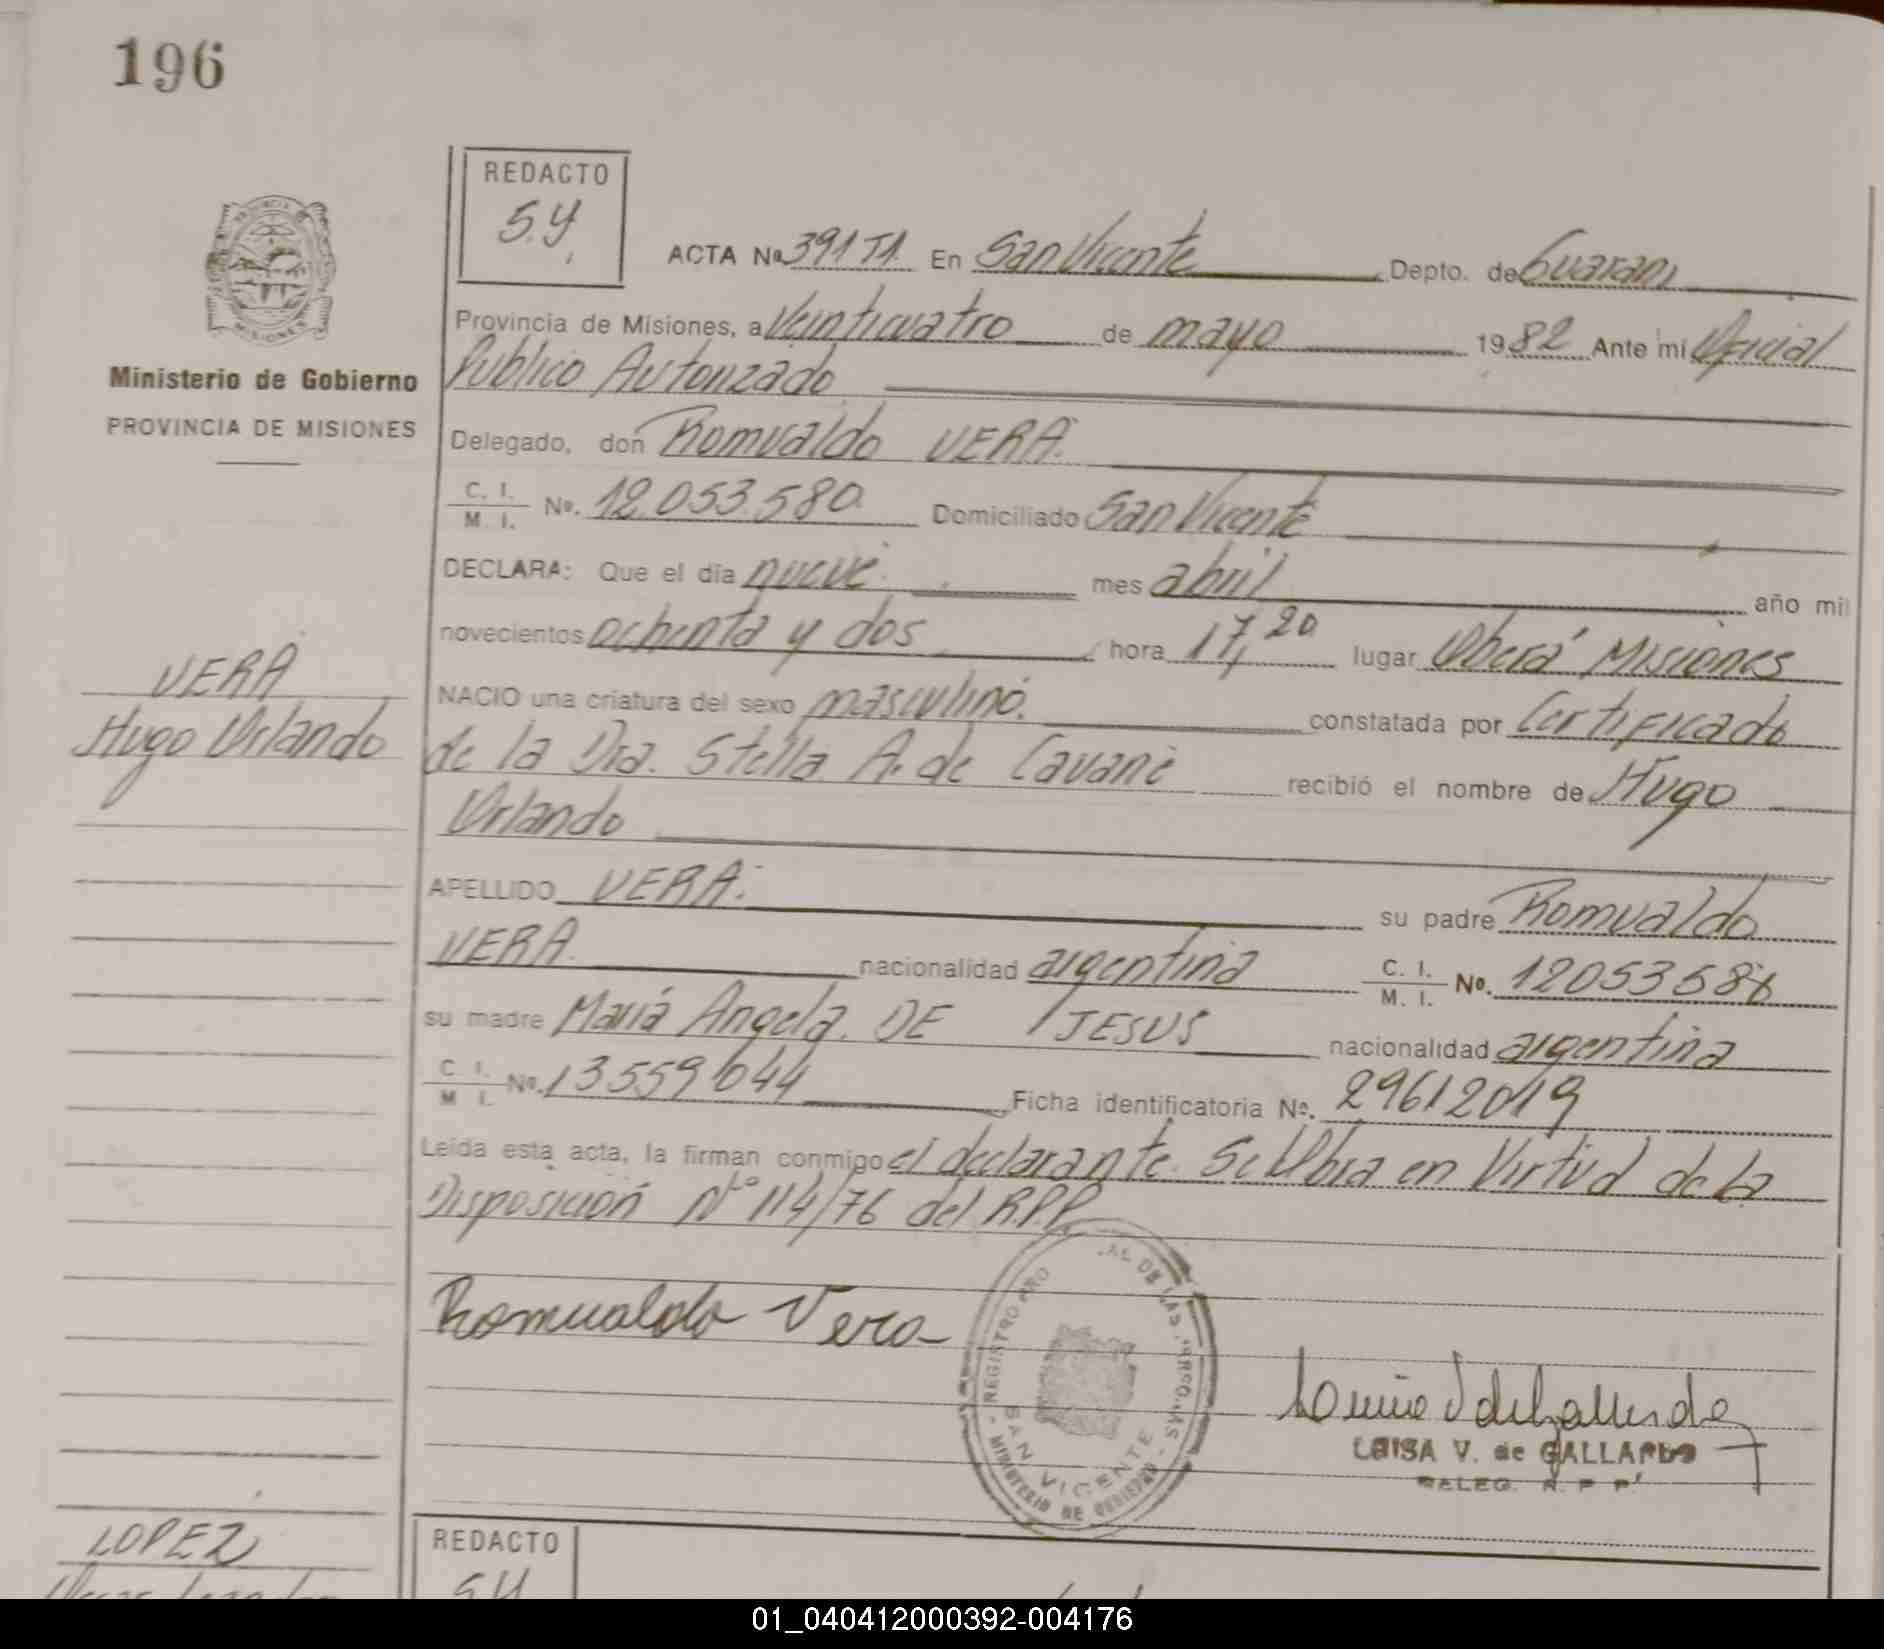 196
REDACTO
S.Y.
ACTA Nº 391 T1. En San Vicente Depto. de Guarani
Provincia de Misiones, a Veinticuatro de mayo 1982 Ante mi Oficial
Publico Autorizado
Ministerio de Gobierno
PROVINCIA DE MISIONES
Delegado, don Romualdo VERA.
C. I.
M. I. Nº. 12.053.580. Domiciliado San Vicente
DECLARA: Que el día nueve mes abril año mil
novecientos ochenta y dos hora 17,20 lugar Oberá Misiones
VERA
Hugo Orlando
NACIO una criatura del sexo masculino. constatada por Certificado
de la Dra. Stella A. de Cavane recibió el nombre de Hugo
Orlando
APELLIDO VERA. su padre Romualdo
VERA. nacionalidad argentina C. I. M. I. Nº. 12053580
su madre María Angela. DE JESUS nacionalidad argentina
C. I. M. I. Nº. 13559644 Ficha identificatoria Nº. 29612019
Leída esta acta, la firman conmigo el declarante. Se labra en Virtud de la
Disposición Nº 114/76 del R.P.P.
Romualdo Vera
REGISTRO PRO AL DE LAS PERSONAS
SAN VICENTE
MINISTERIO DE GOBIERNO
LUISA V. de GALLARDO
DELEG. R. P. P.
LOPEZ
REDACTO
S.Y.
01_040412000392-004176